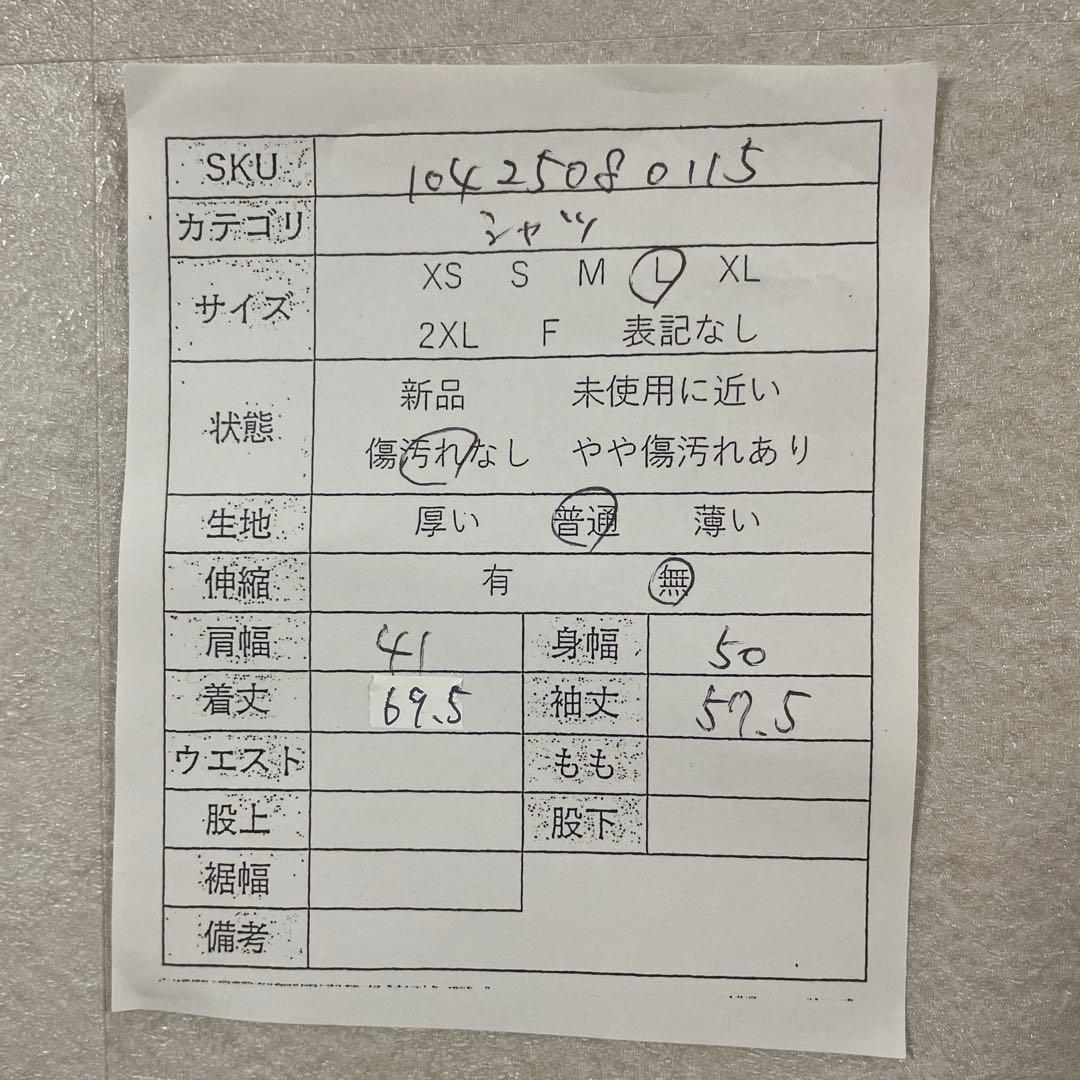 SKU 10425080115
カテゴリ シャツ
サイズ XS S M L XL
2XL F 表記なし
状態 新品 未使用に近い
傷汚れなし やや傷汚れあり
生地 厚い 普通 薄い
伸縮 有 無
肩幅 41 身幅 50
着丈 69.5 袖丈 57.5
ウエスト もも
股上 股下
裾幅
備考